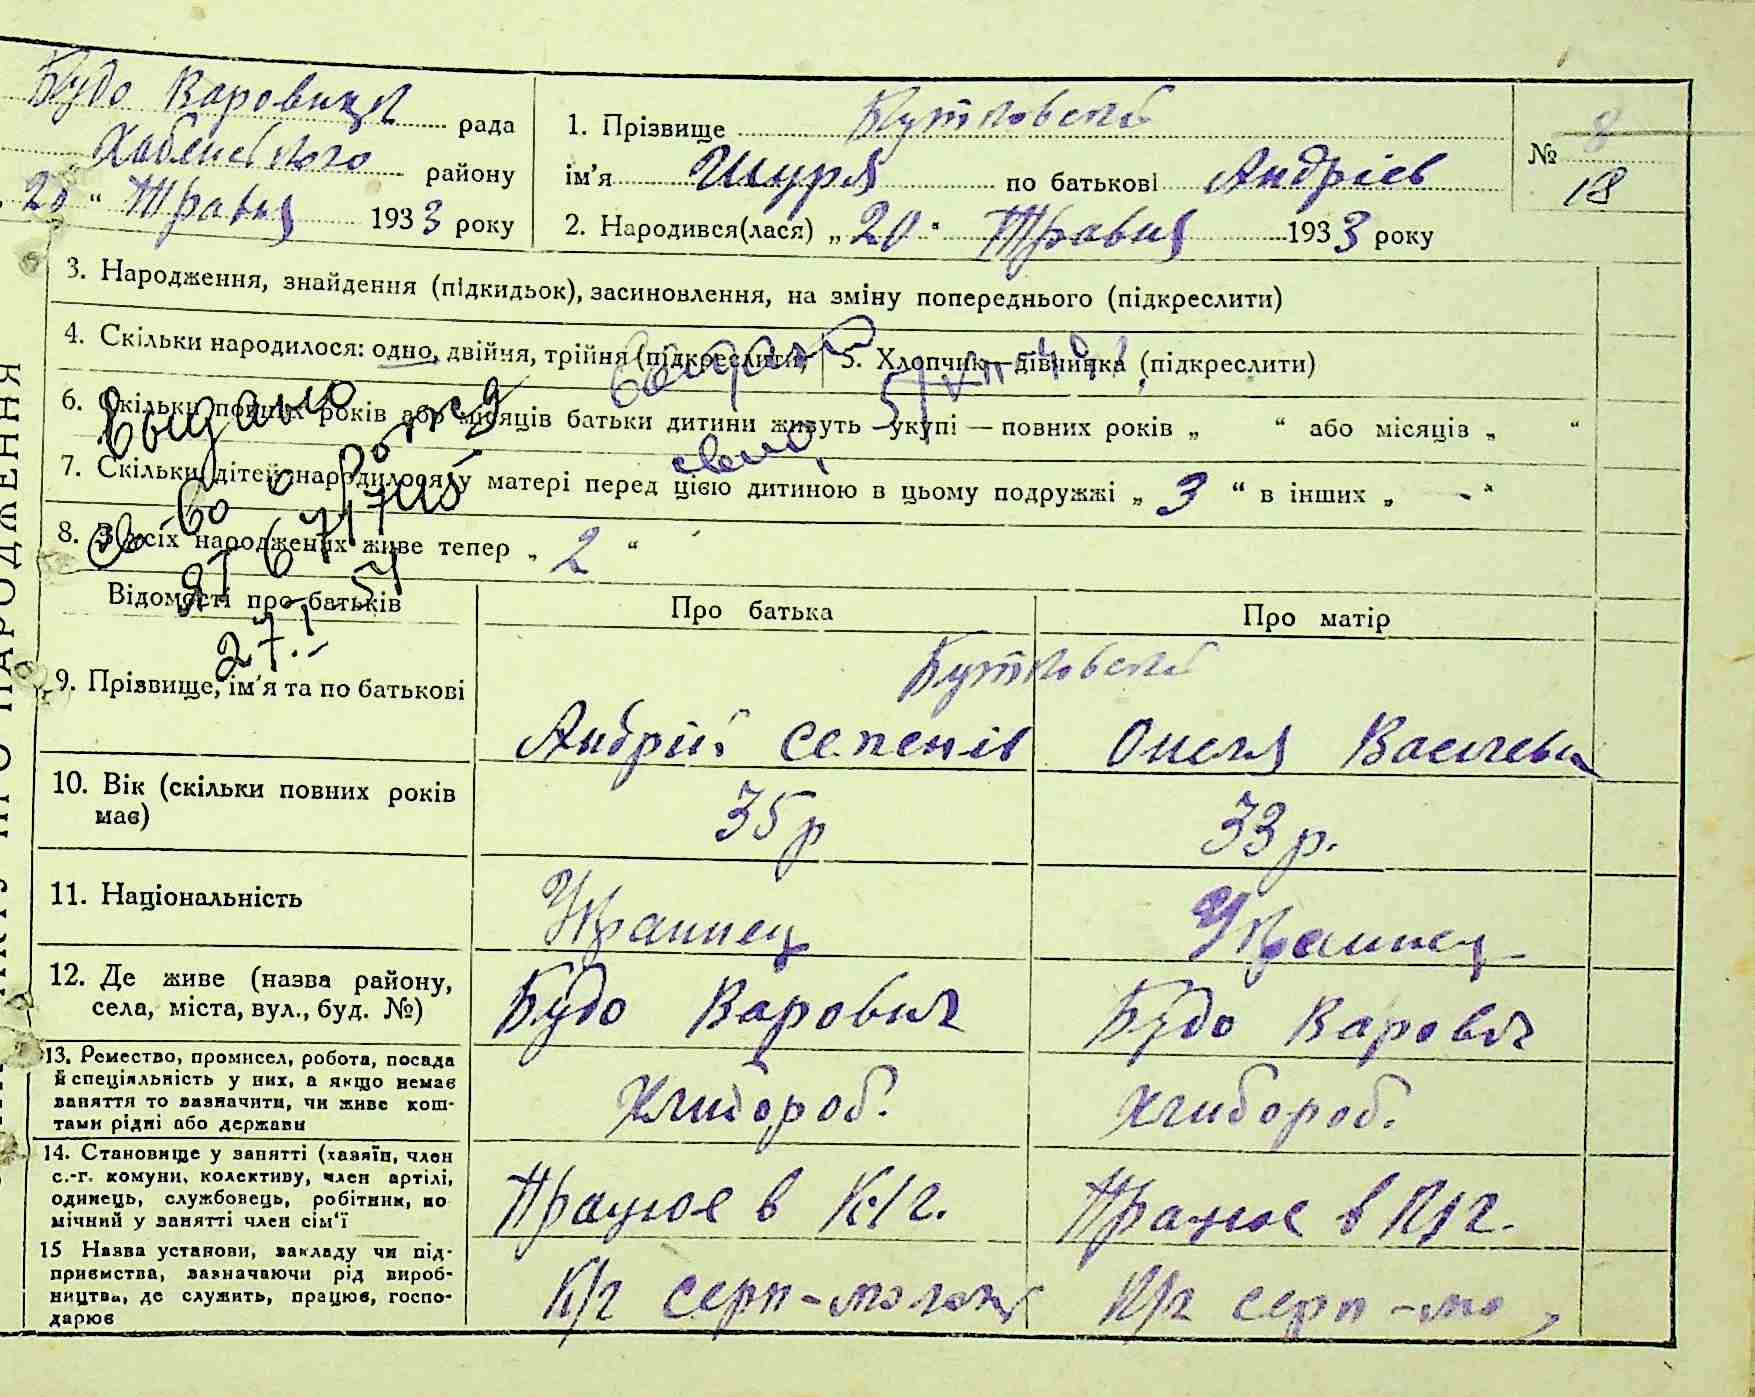 Будо Варовицк рада
Хабенського району
20 " Травня 1933 року
1. Прізвище Бутковский
ім'я Шура по батькові Андріев
№ 8
18
2. Народився(лася) „ 20 " Травня 1933 року
3. Народження, знайдення (підкидьок), засиновлення, на зміну попереднього (підкреслити)
4. Скільки народилося: одно, двійня, трійня (підкреслити)
5. Хлопчик—дівчинка (підкреслити)
6. Скільки повних років або місяців батьки дитини живуть укупі — повних років „ “ або місяців „ “
7. Скільки дітей народилося у матері перед цією дитиною в цьому подружжі „ 3 “ в інших „ - “
8. З усіх народжених живе тепер „ 2 “
Выдано
св-во о рожд
ЯТ 671705
27.I-51
выдано
свид.
Відомості про батьків
Про батька
Про матір
9. Прізвище, ім'я та по батькові
Бутковский
Андрій Семенів
Онеля Васильев
10. Вік (скільки повних років має)
35 р
33 р.
11. Національність
Украинец
Украинец
12. Де живе (назва району,
села, міста, вул., буд. №)
Будо Варович
Будо Варович
13. Ремество, промисел, робота, посада
й спеціяльність у них, а якщо немає
заняття то зазначити, чи живе кош-
тами рідні або держави
Хлибороб.
Хлибороб.
14. Становище у занятті (хазяїн, член
с.-г. комуни, колективу, член артілі,
одинець, службовець, робітник, по
мічний у занятті член сім'ї
Працює в К/г.
Працює в К/г.
15 Назва установи, закладу чи під-
приємства, зазначаючи рід вироб-
ництва, де служить, працює, госпо-
дарює
К/г серп-молот
К/г серп-мо